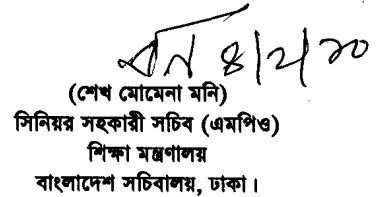 ৪/২/১০
(শেখ মোমেনা মনি)
সিনিয়র সহকারী সচিব (এমপিও)
শিক্ষা মন্ত্রণালয়
বাংলাদেশ সচিবালয়, ঢাকা।